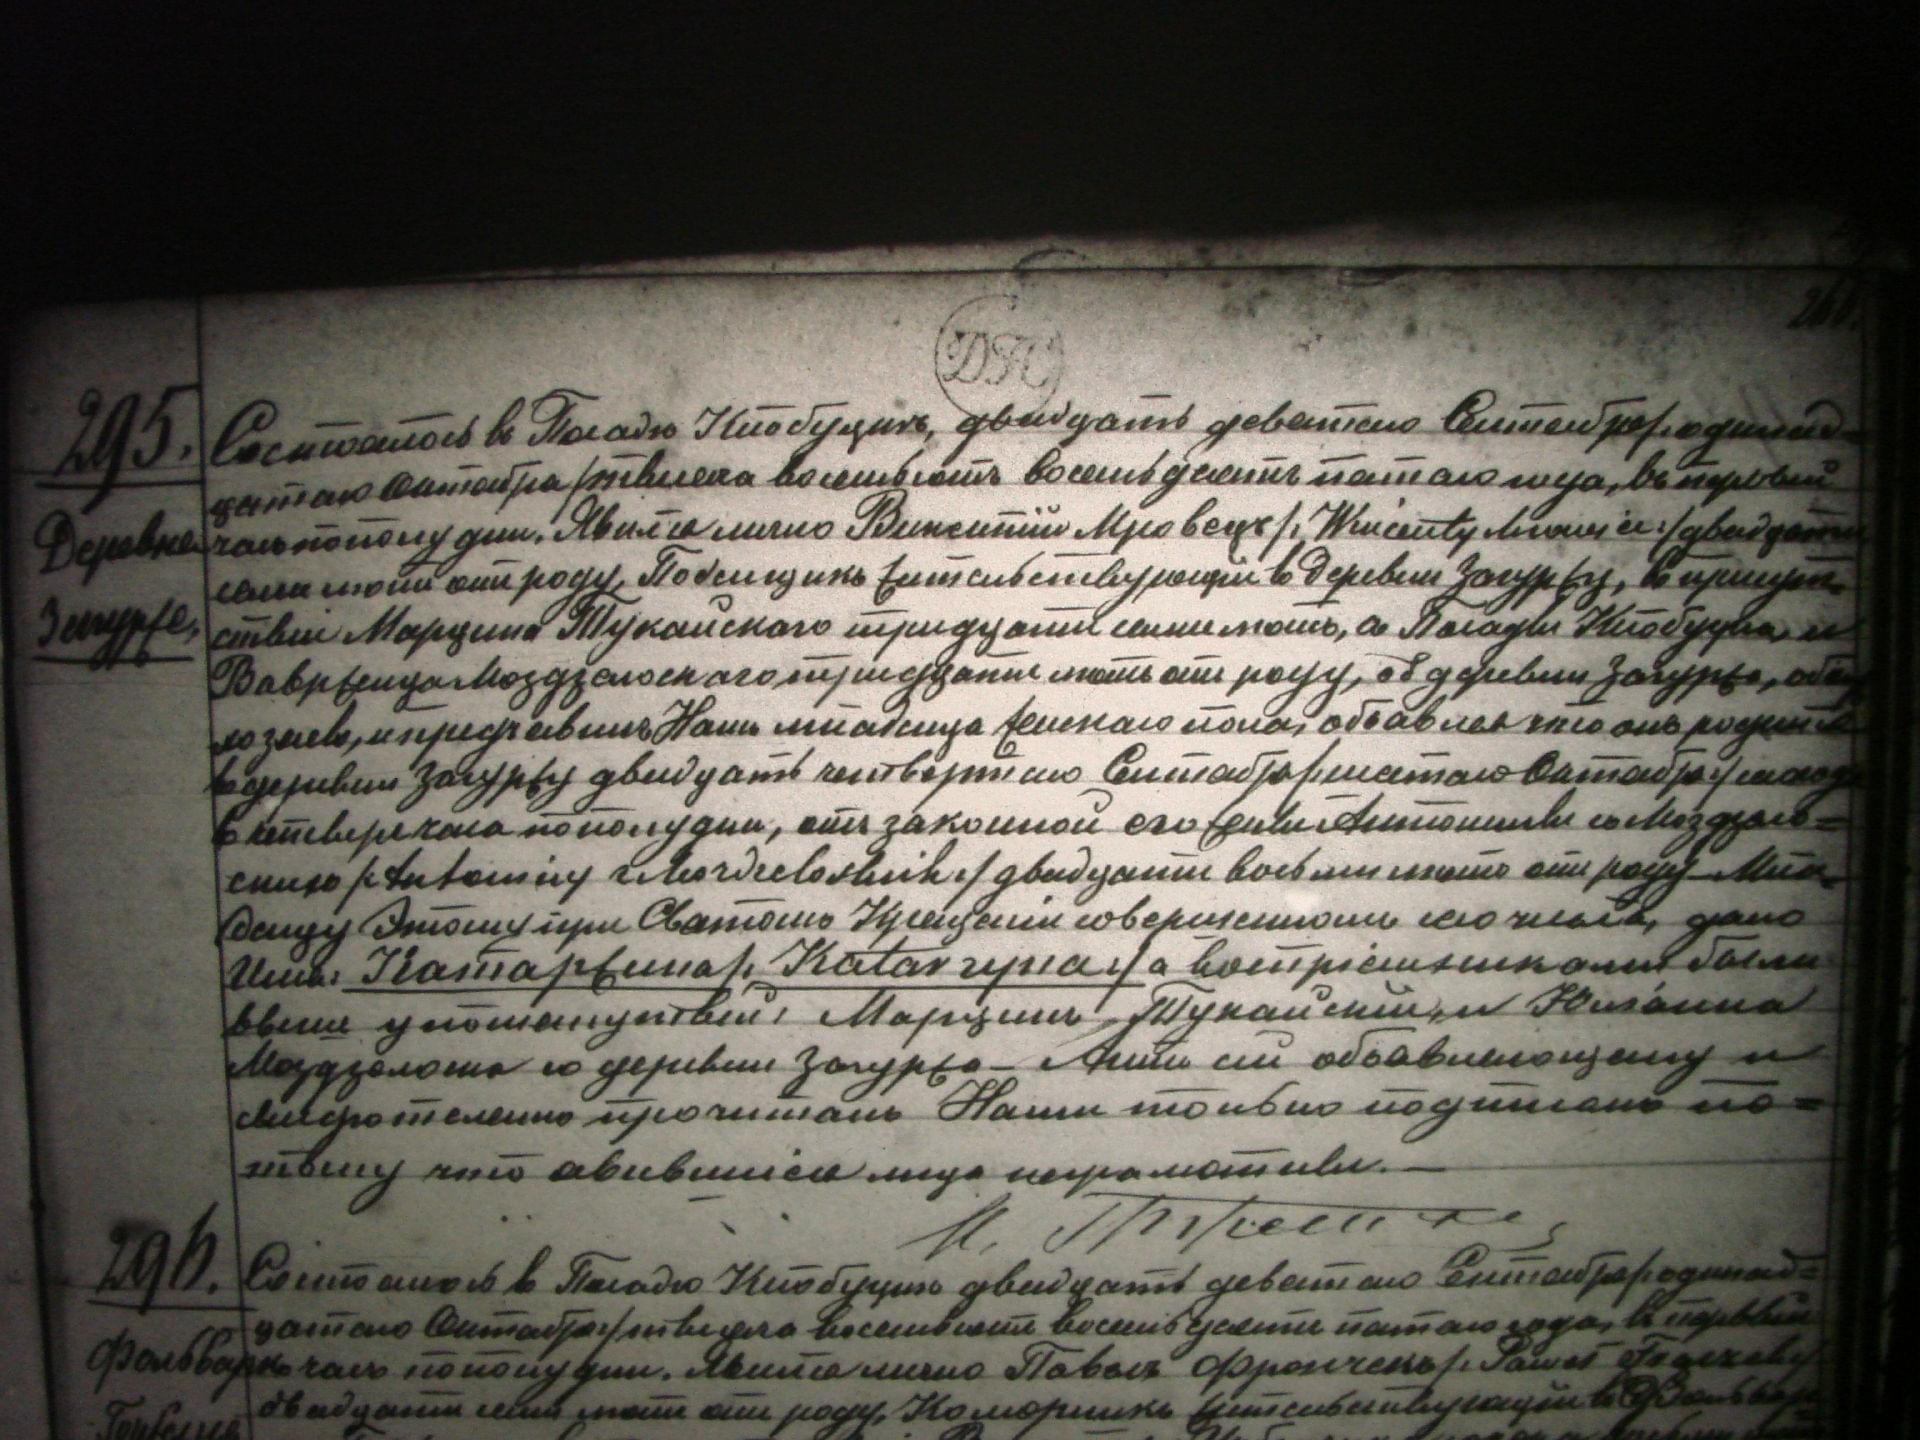 266.
ДЖ
295.
Деревня
Загурже.
Состоялось въ Посадѣ Клобуцкъ, двадцать девятаго Сентября /: одиннад=
цатаго Октября :/ тысяча восемьсотъ восемьдесятъ пятаго года, въ первый
часъ пополудни. Явился лично Викентій Мровецъ /: Wincenty Mrowiec :/ двадцати
семи лѣтъ отъ роду, жительствующій въ деревни Загуржу, въ присут=
ствіи Марцина Тукайского тридцати семи лѣтъ, съ Посады Клобуцка, и
Вавржинца Моздзолоскаго тридцати лѣтъ отъ роду, съ деревни Загуржа,
и предъявилъ Намъ младенца женскаго пола, объявляя что онъ родился
въ деревни Загуржу двадцать четвертаго Сентября /: шестаго Октября :/ сего года
въ четыре часа пополудни, отъ законной его жены Антонины съ Моздзоло=
/: Antoniny z :/ двадцати восьми лѣтъ отъ роду – Мла=
денцу этому при Святомъ Крещеніи совершенномъ сего числа, дано
имя: Катаржина /: Katarzyna :/ а воспріемниками были
выше упомянутый: Марцинъ Тукайскій, и Юліанна
Моздзолоска съ деревни Загуржа – Актъ сей объявляющему и
свидѣтелямъ прочитанъ Нами только подписанъ по=
тому что явившіеся лица неграмотны. —
296.
Фольваркъ
Состоялось въ Посадѣ Клобуцкъ двадцать девятаго Сентября /: одиннад=
цатаго Октября :/ тысяча восемьсотъ восемьдесятъ пятаго года, въ первый
часъ пополудни. Явился лично Павелъ Франчекъ /: Paweł
двадцати семи лѣтъ отъ роду, Коморникъ жительствующій въ Фольвар=